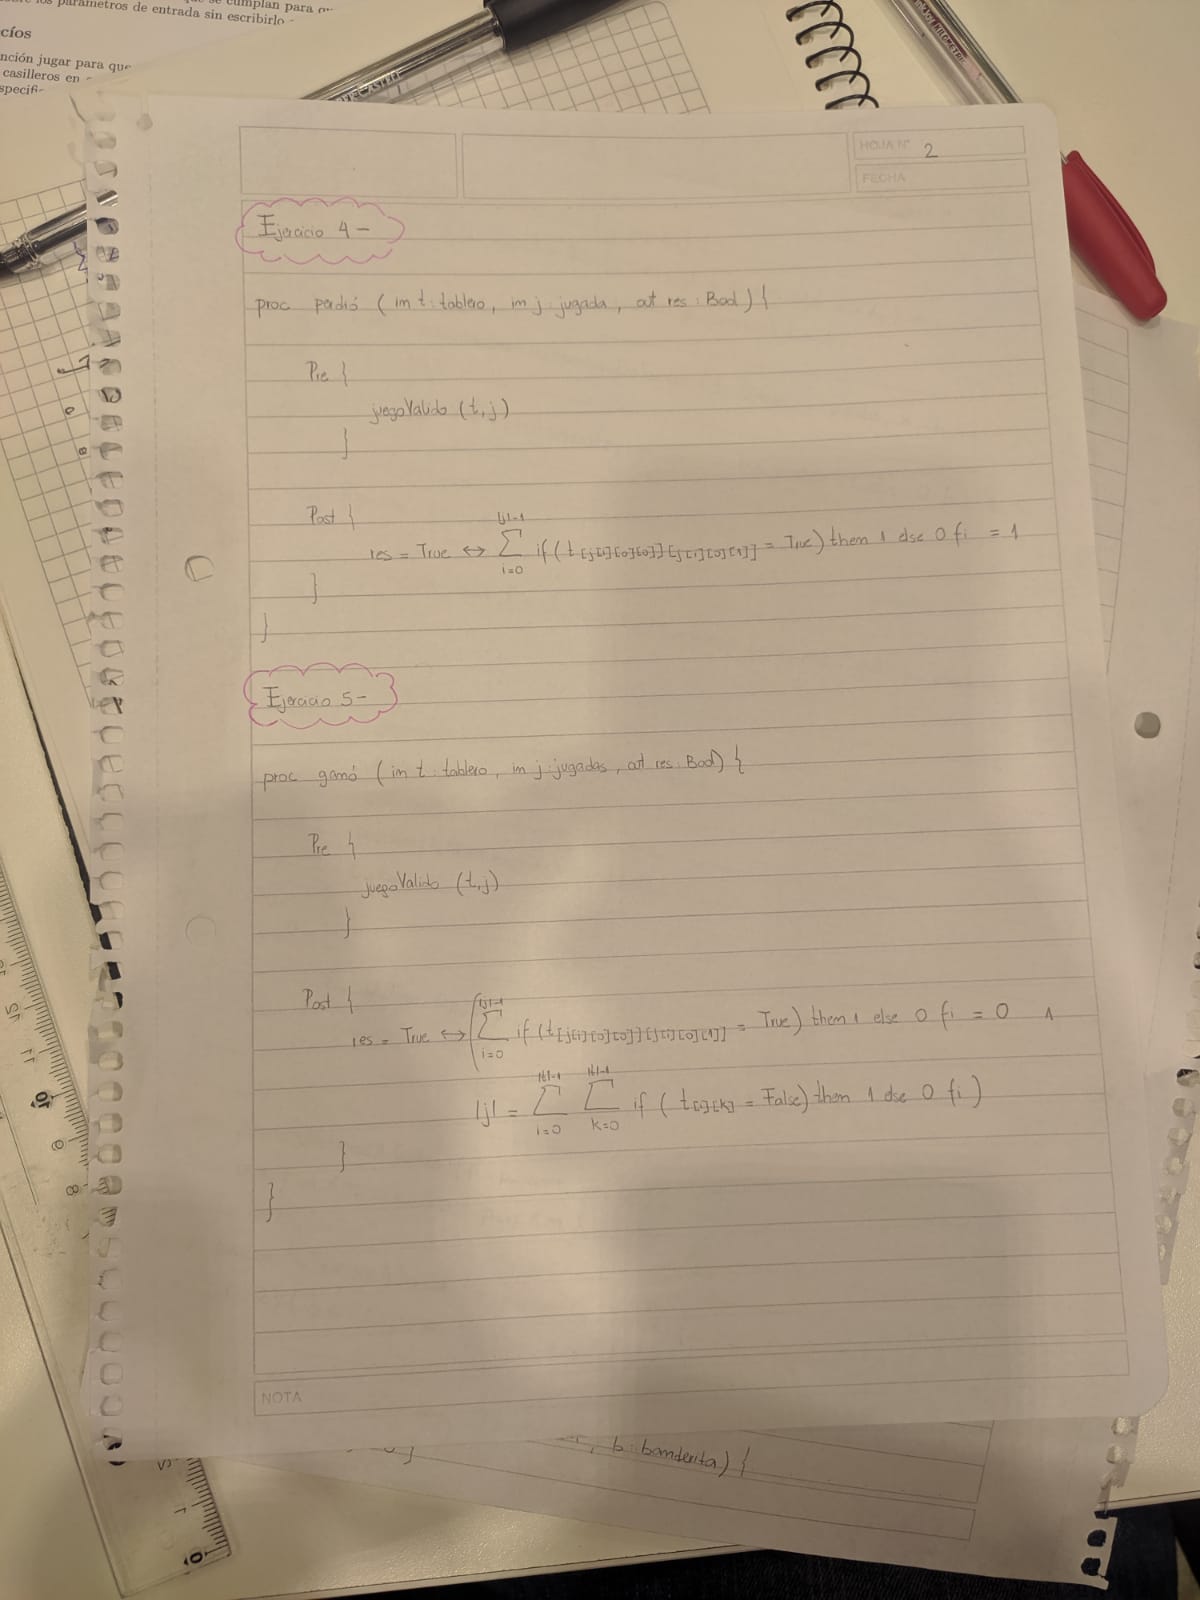 parámetros de entrada sin escribirlo
cíos
nción jugar para que
casilleros en
HOJA N° 2
FECHA
Ejercicio 4-
proc perdió (in t: tablero, in j: jugada, out res: Bool) {
Pre {
juegoValido (t,j)
}
Post {
res = True ↔ |j|-1 Σ i=0 if (t[j[i][0][0]][j[i][0][1]] = True) then 1 else 0 fi = 1
}
}
Ejercicio 5-
proc ganó (in t: tablero, in j: jugadas, out res: Bool) {
Pre {
juegoValido (t,j)
}
Post {
res = True ↔ ( |j|-1 Σ i=0 if (t[j[i][0][0]][j[i][0][1]] = True) then 1 else 0 fi = 0 ∧
|j| = |t|-1 Σ i=0 |t|-1 Σ k=0 if (t[i][k] = False) then 1 else 0 fi )
}
}
NOTA
, b: banderita) {